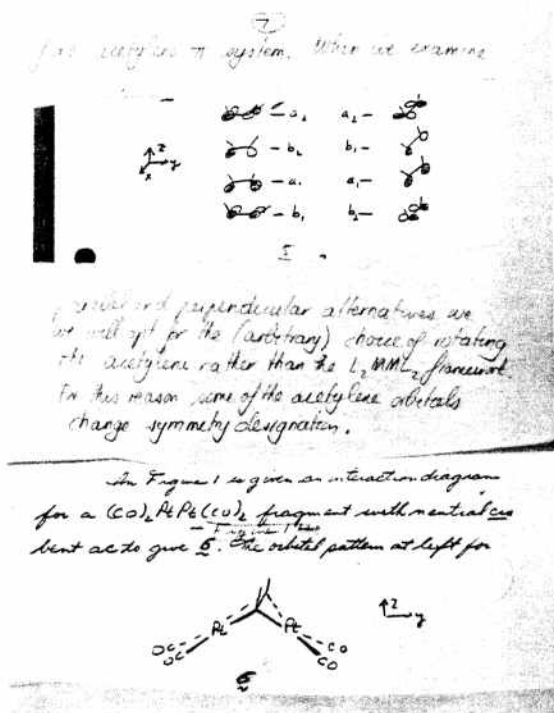 7
acetylene π system. When we examine
a₂ a₂
b₂ b₁
a₁ a₁
b₁ b₂
z
y
x
5
parallel and perpendicular alternatives we
we will opt for the (arbitrary) choice of rotating
the acetylene rather than the L₂MML₂ framework.
For this reason some of the acetylene orbitals
change symmetry designation.
In Figure 1 is given an interaction diagram
for a (CO)₂PtPt(CO)₂ fragment with neutral cis
Figure 1 here
bent ac to give 6. The orbital pattern at left for
z
y
Pt Pt
OC CO
OC CO
6